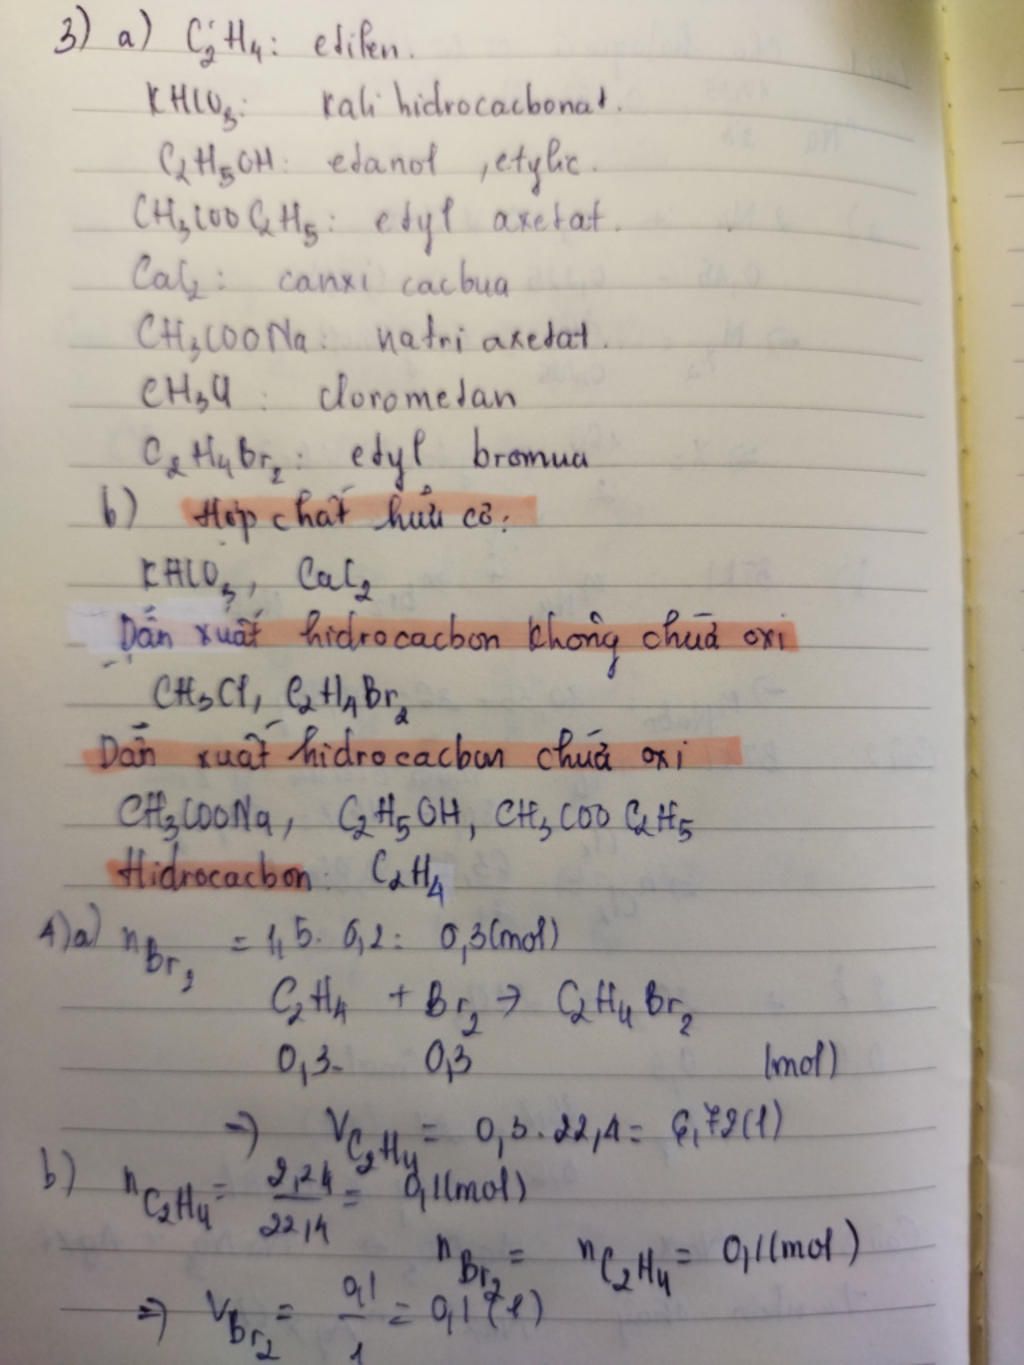 3) a) C₂H₄: etilen.
KHCO₃: Kali hidrocacbonat.
C₂H₅OH: etanol, etylic.
CH₃COOC₂H₅: etyl axetat.
CaC₂: canxi cacbua
CH₃COONa: natri axetat.
CH₃Cl: clorometan
C₂H₄Br₂: etyl bromua
b) Hợp chất hữu cơ:
KHCO₃, CaC₂
Dẫn xuất hidrocacbon không chứa oxi
CH₃Cl, C₂H₄Br₂
Dẫn xuất hidrocacbon chứa oxi
CH₃COONa, C₂H₅OH, CH₃COOC₂H₅
Hidrocacbon: C₂H₄
4) a) n Br₂ = 1,5. 0,2 = 0,3 (mol)
C₂H₄ + Br₂ → C₂H₄Br₂
0,3 0,3 (mol)
⇒ V C₂H₄ = 0,3.22,4 = 6,72 (l)
b) n C₂H₄ = 2,24/22,4 = 0,1 (mol)
n Br₂ = n C₂H₄ = 0,1 (mol)
⇒ V Br₂ = 0,1/1 = 0,1 (l)